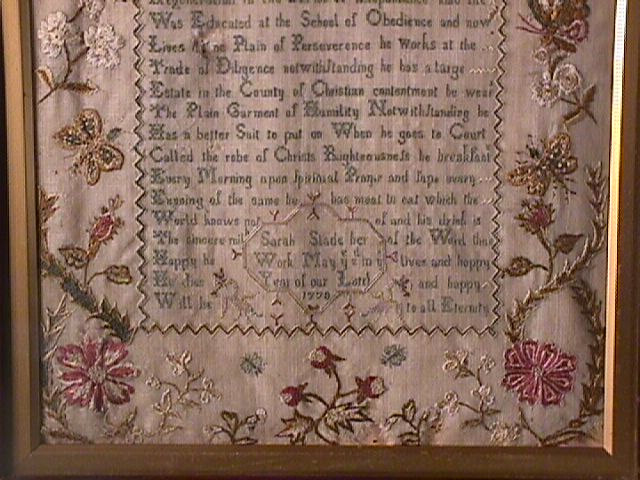 Was Educated at the School of Obedience and now
Lives at ne Plain of Perseverence he works at the
Trade of Diligence notwithstanding he has a large
Estate in the County of Christian contentment he wear
The Plain Garment of Humility Notwithstanding he
Has a better Suit to put on When he goes to Court
Called the robe of Christs Righteousness he breakfast
Every Morning upon spiritual Prayer and sups every
Evening of the same he has meat to eat which the
World knows not of and his drink is
The sincere mil Sarah Slade her of the Word thus
Happy he Work May ye in lives and happy
He dies Year of our Lord and happy
Will be 1778 to all Eternity